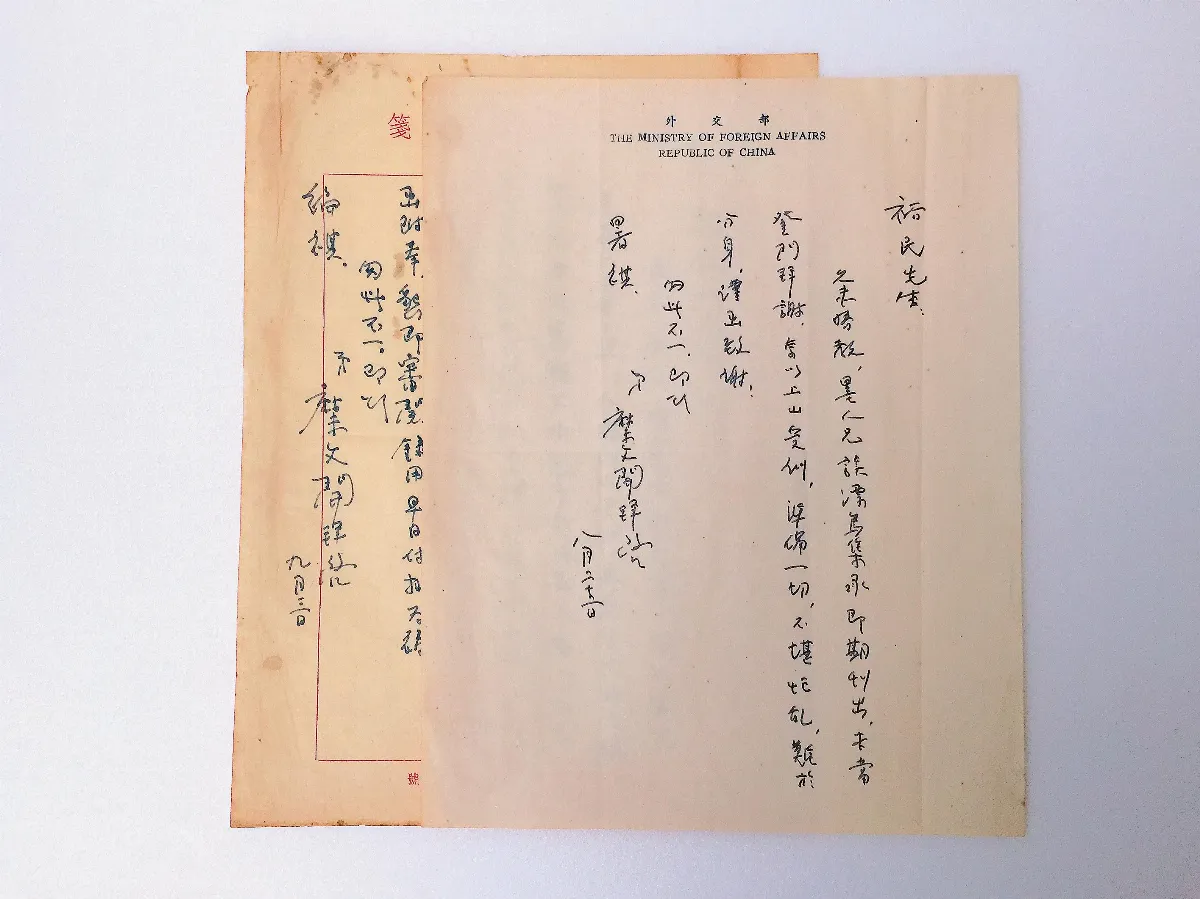 外交部
THE MINISTRY OF FOREIGN AFFAIRS
REPUBLIC OF CHINA
裕民先生:
久未晤教,墨人兄談漂鳥集承即期刊出,本當
登門拜謝,以上山受训,準備一切,不堪忙乱,難於
分身,謹函致謝,
匆此不一,即頌
暑祺.
弟 糜文開拜啓
八月
箋
函附奉,懇即審閱錄用早日付排為
匆此不一。即頌
編祺.
弟 糜文開拜啓
九月三日
號